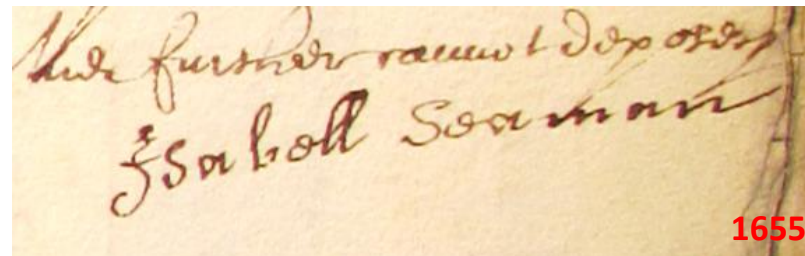 And further cannot deposeth
Isabell Seaman
1655